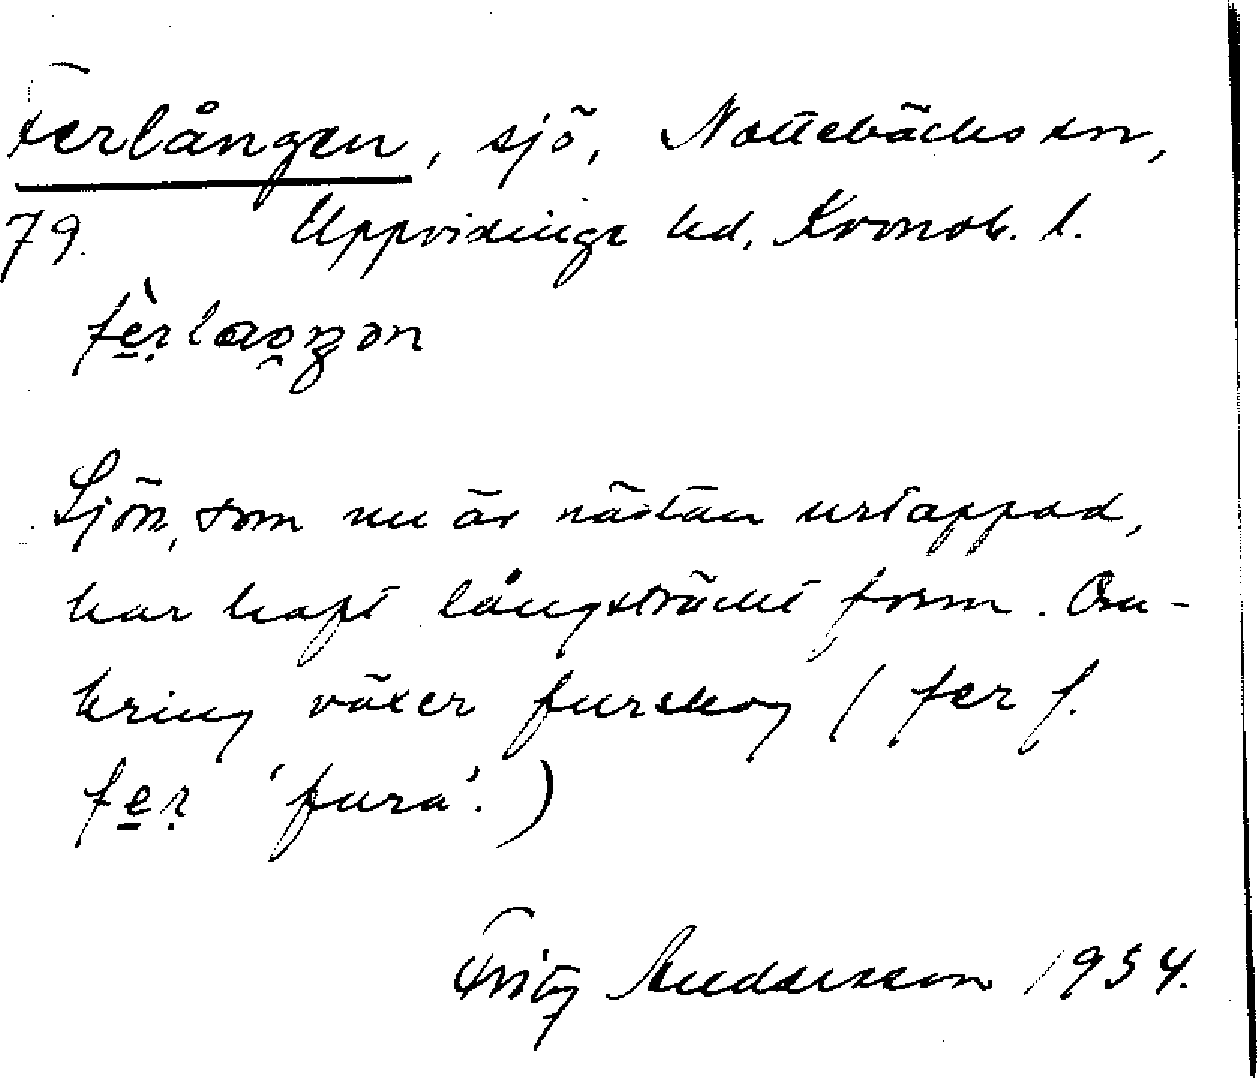 Ferlången, sjö, Nottebäcks sn,
79. Uppvidinge hd, Kronob. l.
Sjön, som nu är nästan urtappad,
har haft långsträckt form. Om-
kring växer furskog (fer f.
fer 'fura'.)
Fritz Andersson 1934.